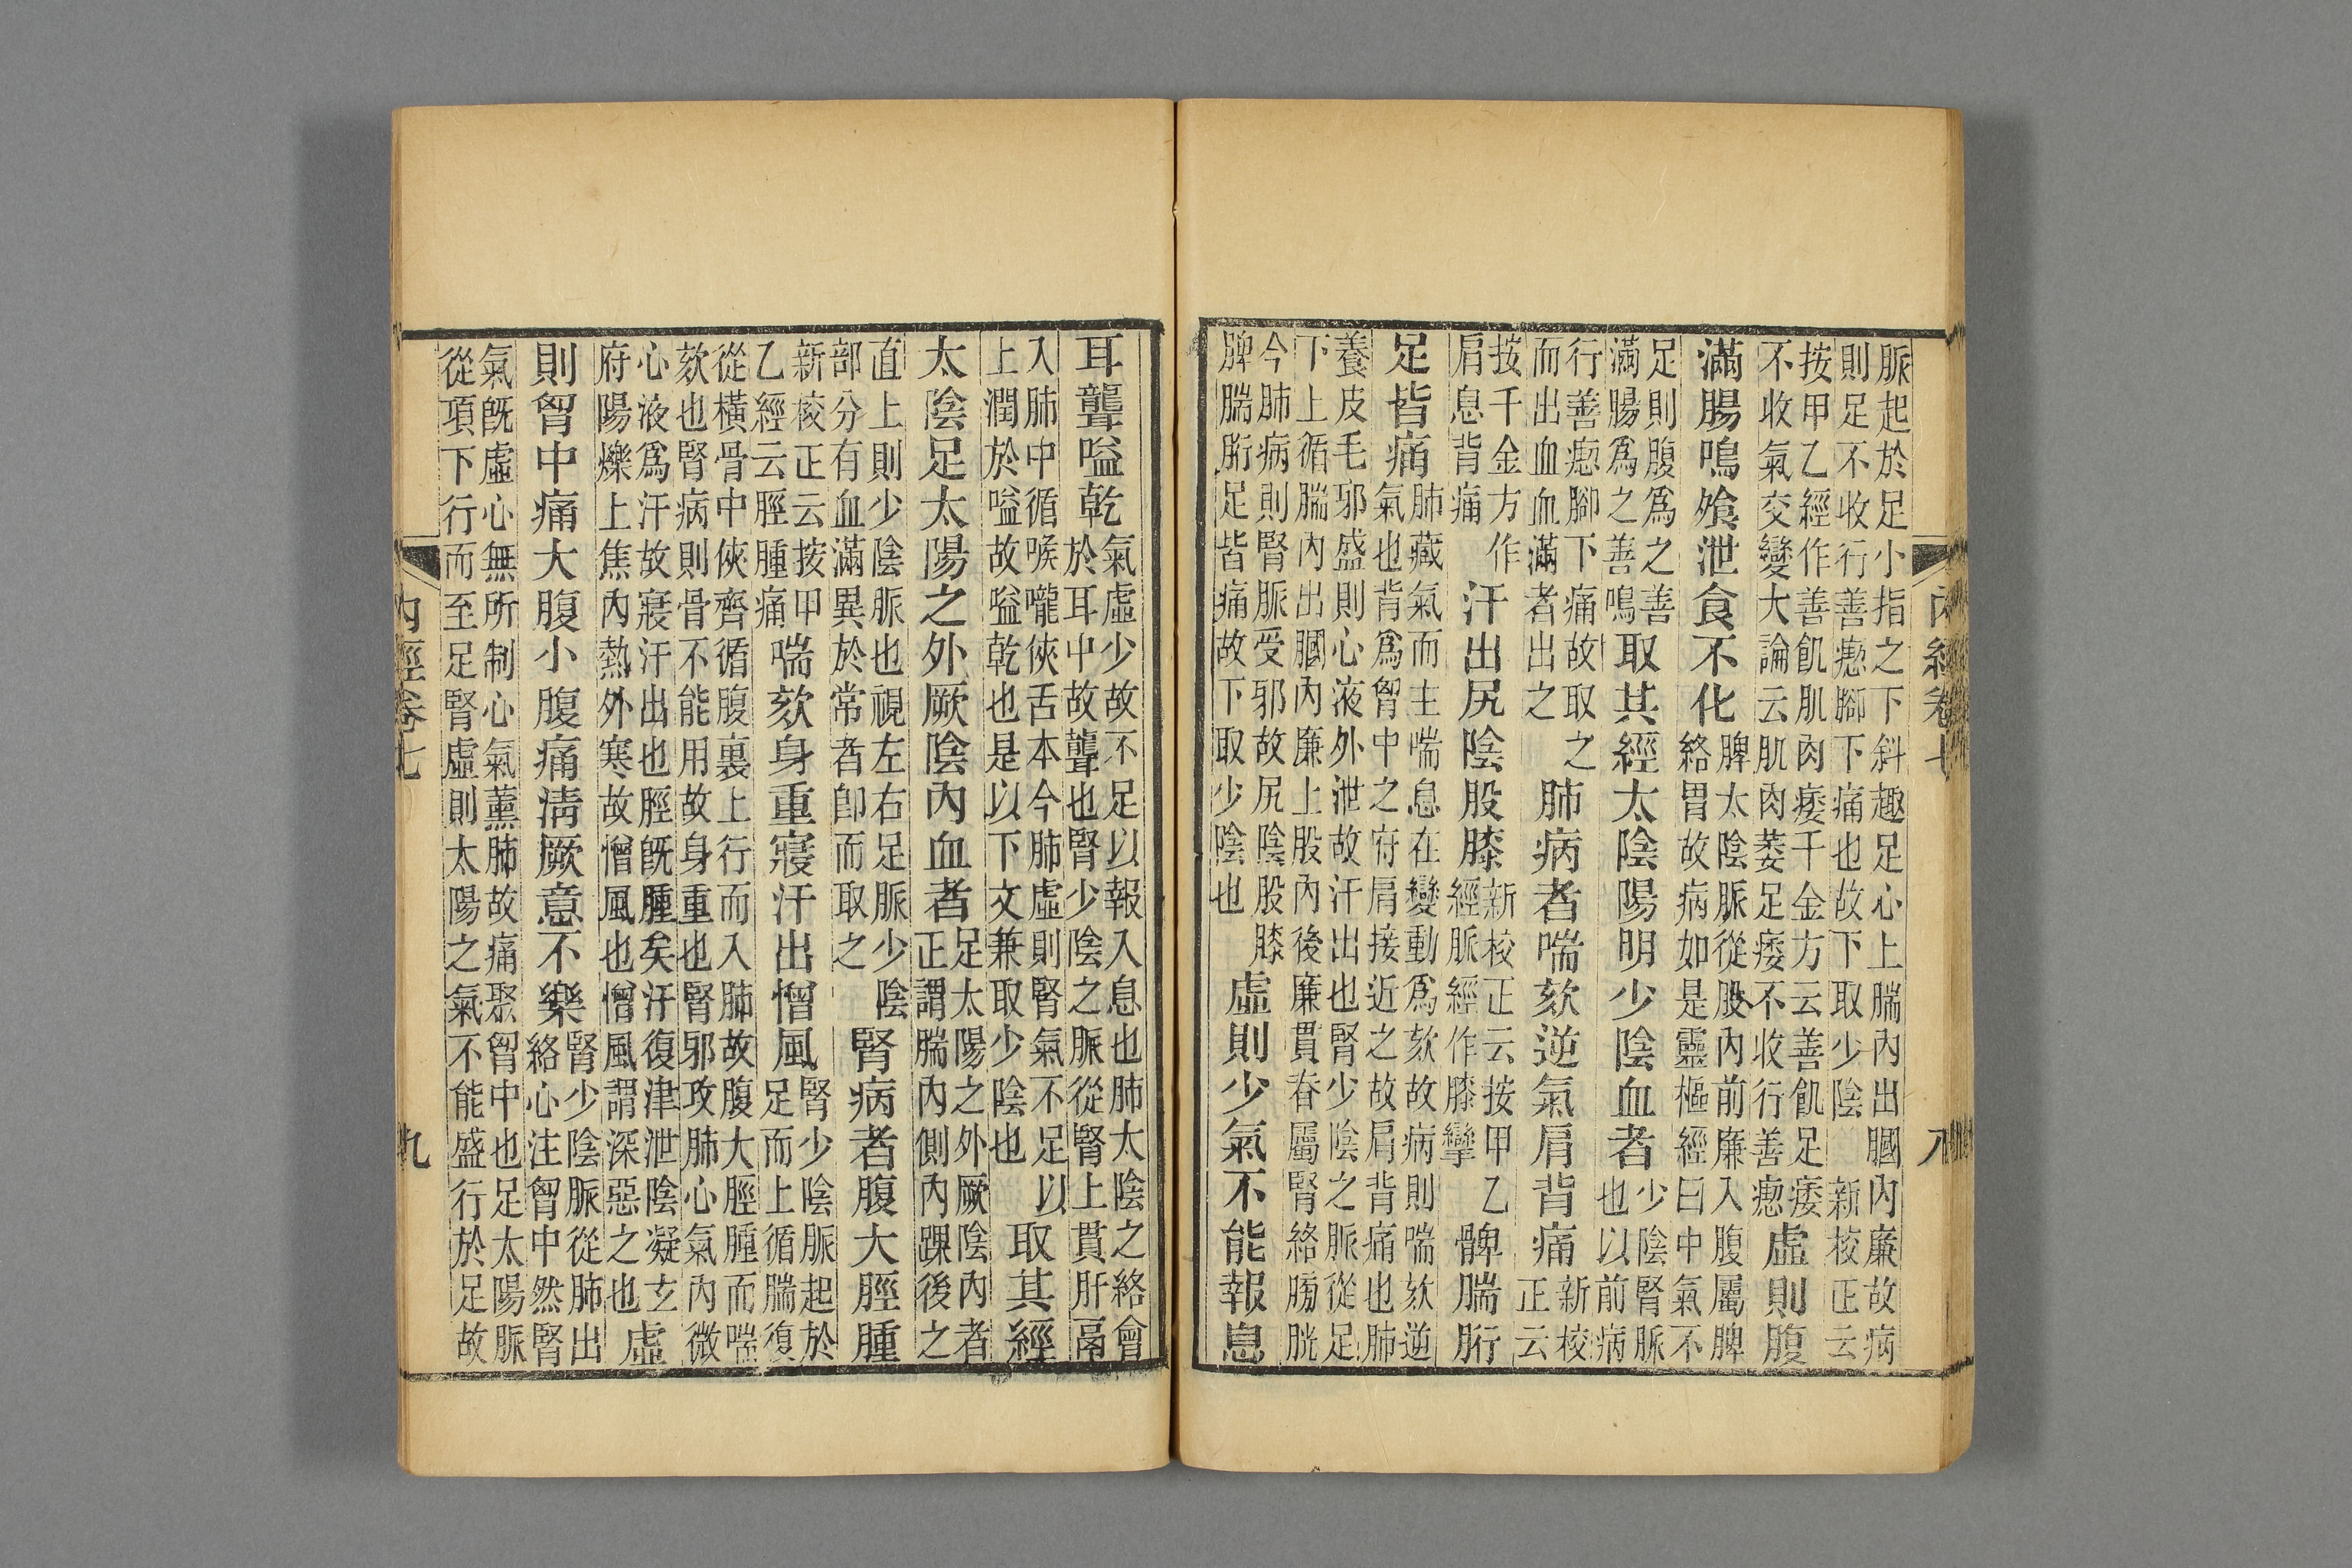 內經卷七 八
脈起於足小指之下斜趣足心上腨內出膕內廉故病
則足不收行善瘛腳下痛也故下取少陰 新校正云
按甲乙經作善飢肌肉痿千金方云善飢足痿
不收氣交變大論云肌肉萎足痿不收行善瘛
虛則腹
滿腸鳴飧泄食不化
脾太陰脈從股內前廉入腹屬脾
絡胃故病如是靈樞經曰中氣不
足則腹爲之善
滿腸爲之善鳴
取其經太陰陽明少陰血者
少陰腎脈
也以前病
行善瘛腳下痛故取之
而出血血滿者出之
肺病者喘欬逆氣肩背痛
新校
正云
按千金方作
肩息背痛
汗出尻陰股膝
新校正云按甲乙
經脈經作膝攣
髀腨胻
足皆痛
肺藏氣而主喘息在變動爲欬故病則喘欬逆
氣也背爲胷中之府肩接近之故肩背痛也肺
養皮毛邪盛則心液外泄故汗出也腎少陰之脈從足
下上循腨內出膕內廉上股內後廉貫脊屬腎絡膀胱
今肺病則腎脈受邪故尻陰股膝
髀腨胻足皆痛故下取少陰也
虛則少氣不能報息
耳聾嗌乾
氣虛少故不足以報入息也肺太陰之絡會
於耳中故聾也腎少陰之脈從腎上貫肝鬲
入肺中循喉嚨俠舌本今肺虛則腎氣不足以
上潤於嗌故嗌乾也是以下文兼取少陰也
取其經
太陰足太陽之外厥陰內血者
足太陽之外厥陰內者
正謂腨內側內踝後之
直上則少陰脈也視左右足脈少陰
部分有血滿異於常者卽而取之
腎病者腹大脛腫
新校正云按甲
乙經云脛腫痛
喘欬身重寢汗出憎風
腎少陰脈起於
足而上循腨復
從橫骨中俠齊循腹裏上行而入肺故腹大脛腫而喘
欬也腎病則骨不能用故身重也腎邪攻肺心氣內微
心液爲汗故寢汗出也脛旣腫矣汗復津泄陰凝玄
府陽爍上焦內熱外寒故憎風也憎風謂深惡之也
虛
則胷中痛大腹小腹痛淸厥意不樂
腎少陰脈從肺出
絡心注胷中然腎
氣旣虛心無所制心氣薰肺故痛聚胷中也足太陽脈
從項下行而至足腎虛則太陽之氣不能盛行於足故
內經卷七 九